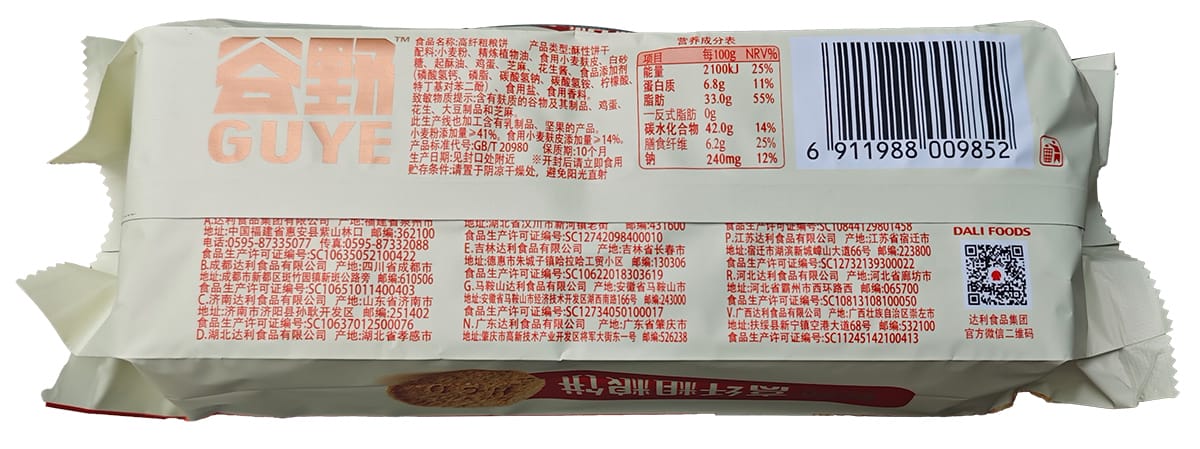 谷野™
GUYE
食品名称:高纤粗粮饼 产品类型:酥性饼干
配料:小麦粉、精炼植物油、食用小麦麸皮、白砂
糖、起酥油、鸡蛋、芝麻、花生酱、食品添加剂
(磷酸氢钙、磷脂、碳酸氢钠、碳酸氢铵、柠檬酸、
特丁基对苯二酚)、食用盐、食用香料。
致敏物质提示:含有麸质的谷物及其制品、鸡蛋、
花生、大豆制品和芝麻。
此生产线也加工含有乳制品、坚果的产品。
小麦粉添加量≥41%。食用小麦麸皮添加量≥14%。
产品标准代号:GB/T 20980 保质期:10个月
生产日期:见封口处附近 ※开封后请立即食用
贮存条件:请置于阴凉干燥处,避免阳光直射
营养成分表
项目 每100g NRV%
能量 2100kJ 25%
蛋白质 6.8g 11%
脂肪 33.0g 55%
—反式脂肪 0g
碳水化合物 42.0g 14%
膳食纤维 6.2g 25%
钠 240mg 12%
6 911988 009852
A.达利食品集团有限公司 产地:福建省泉州市
地址:中国福建省惠安县紫山林口 邮编:362100
电话:0595-87335077 传真:0595-87332088
食品生产许可证编号:SC10635052100422
B.成都达利食品有限公司 产地:四川省成都市
地址:成都市新都区斑竹园镇新斑公路旁 邮编:610506
食品生产许可证编号:SC10651011400403
C.济南达利食品有限公司 产地:山东省济南市
地址:济南市济阳县孙耿开发区 邮编:251402
食品生产许可证编号:SC10637012500076
D.湖北达利食品有限公司 产地:湖北省孝感市
地址:湖北省汉川市新河镇老街 邮编:431600
食品生产许可证编号:SC12742098400010
E.吉林达利食品有限公司 产地:吉林省长春市
地址:德惠市朱城子镇哈拉哈工贸小区 邮编:130306
食品生产许可证编号:SC10622018303619
G.马鞍山达利食品有限公司 产地:安徽省马鞍山市
地址:安徽省马鞍山市经济技术开发区湖西南路166号 邮编:243000
食品生产许可证编号:SC12734050100017
N.广东达利食品有限公司 产地:广东省肇庆市
地址:肇庆市高新技术产业开发区将军大街东一号 邮编:526238
食品生产许可证编号:SC10844129801458
P.江苏达利食品有限公司 产地:江苏省宿迁市
地址:宿迁市湖滨新城嶂山大道66号 邮编:223800
食品生产许可证编号:SC12732139300022
R.河北达利食品有限公司 产地:河北省廊坊市
地址:河北省霸州市西环路西 邮编:065700
食品生产许可证编号:SC10813108100050
V.广西达利食品有限公司 产地:广西壮族自治区崇左市
地址:扶绥县新宁镇空港大道68号 邮编:532100
食品生产许可证编号:SC11245142100413
DALI FOODS
达利食品集团
官方微信二维码
高纤粗粮饼